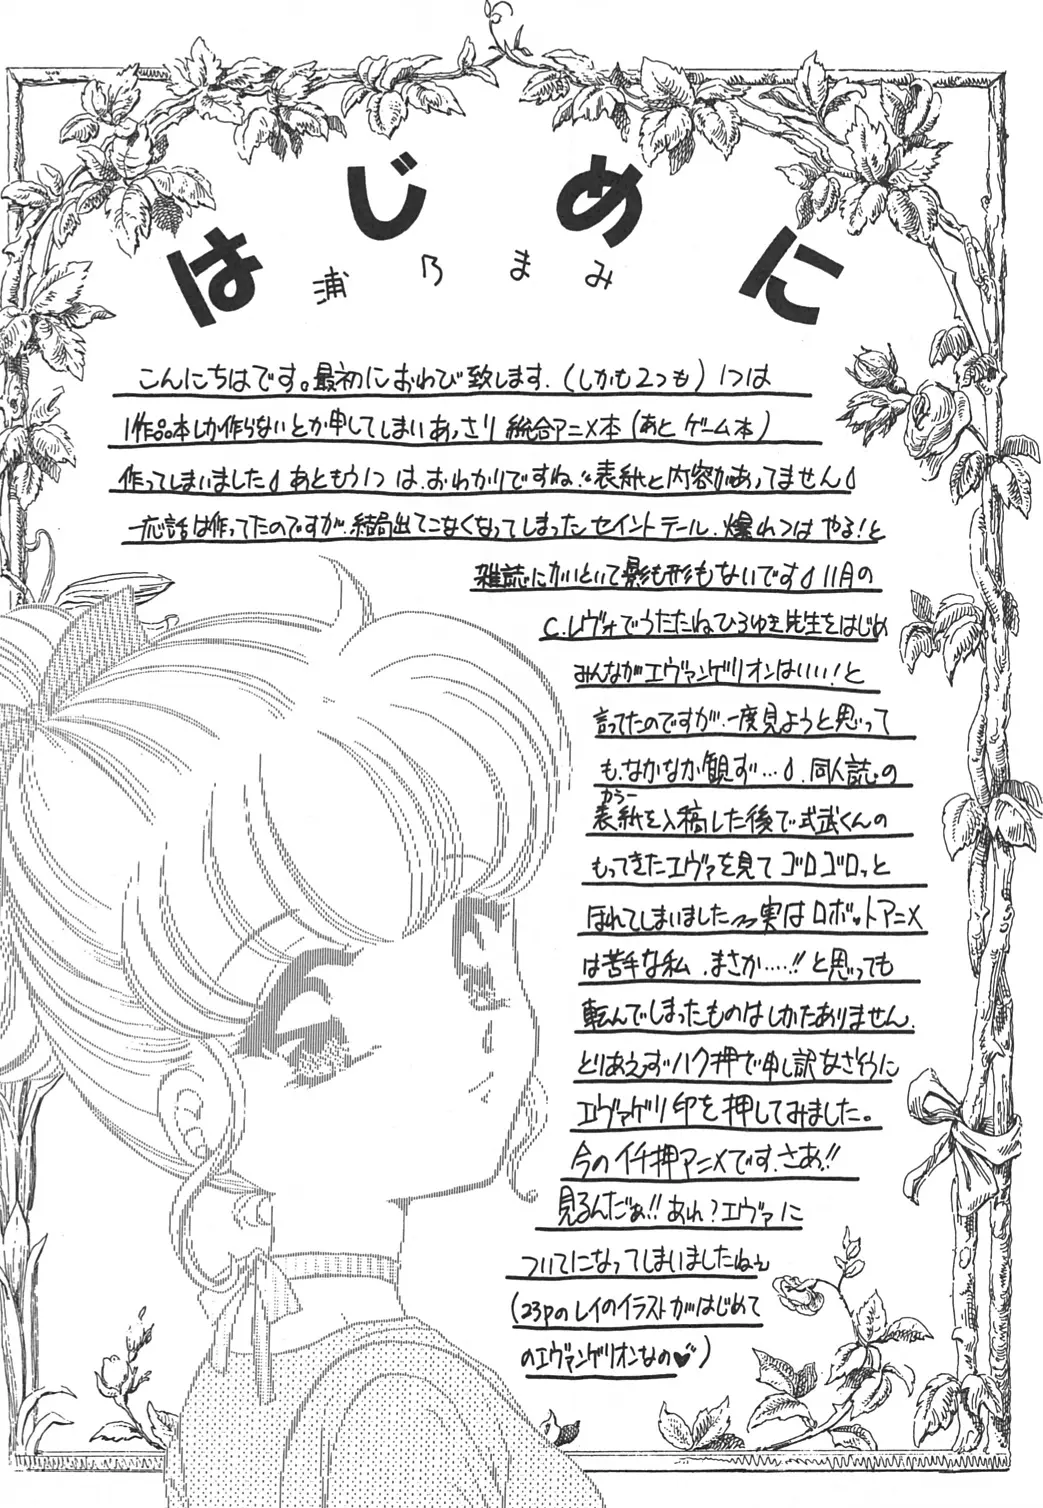 はじめに
浦乃まみ
こんにちはです。最初におわび致します.(しかも2つも)1つは
1作品本しか作らないとか申してしまいあっさり総合アニメ本(あとゲーム本)
作ってしまいました あともう1つは.おわかりですね.“表紙と内容があってません
一応話は作ってたのですが.結局出てこなくなってしまったセイントテール.爆れつはやる!と
雑誌にかいといて影も形もないです 11月の
C.レヴォでうたたねひろゆき先生をはじめ
みんながエヴァンゲリオンはいい!と
言ってたのですが.一度見ようと思って
も.なかなか観ず….同人誌の
カラー
表紙を入稿した後で式武くんの
もってきたエヴァを見てゴロゴロっと
ほれてしまいました〜実はロボットアニメ
は苦手な私.まさか……!!と思っても
転んでしまったものはしかたありません.
とりあえずハク押で申し訳なさそうに
エヴァゲリ印を押してみました。
今のイチ押アニメです.さあ!!
見るんだぁ!!あれ?エヴァに
ついてになってしまいましたねぇ
(23Pのレイのイラストがはじめて
のエヴァンゲリオンなの♥)